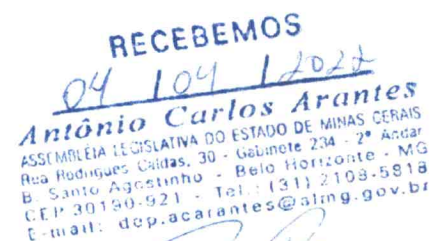 RECEBEMOS
04 / 04 / 2022
Antônio Carlos Arantes
ASSEMBLÉIA LEGISLATIVA DO ESTADO DE MINAS GERAIS
Rua Rodrigues Caldas, 30 - Gabinete 234 - 2º Andar
B. Santo Agostinho - Belo Horizonte - MG
CEP 30190-921 - Tel.: (31) 2108-5818
E-mail: dep.acarantes@almg.gov.br